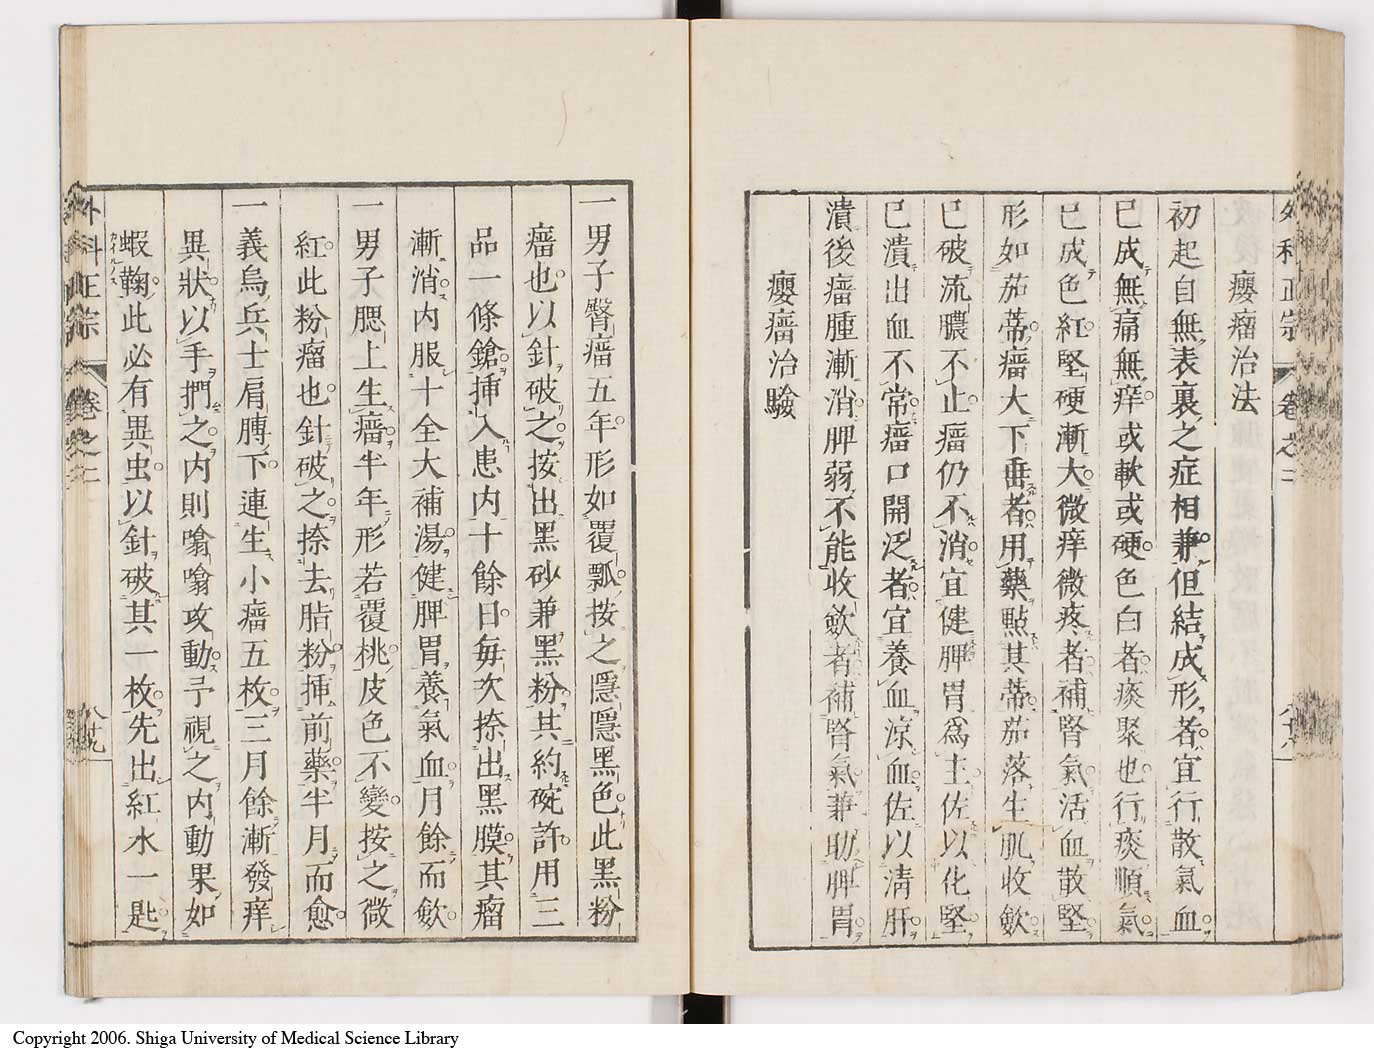 外科正宗 卷之二
癭瘤治法
初起自無表裏之症相兼但結成形者宜行散氣血
已成無痛無痒或軟或硬色白者痰聚也行痰順氣
已成色紅堅硬漸大微痒微疼者補腎氣活血散堅
形如茄蒂瘤大下垂者用藥點其蒂茄落生肌收斂
已破流膿不止瘤仍不消宜健脾胃爲主佐以化堅
已潰出血不常瘤口開泛者宜養血凉血佐以清肝
潰後瘤腫漸消脾弱不能收斂者補腎氣兼助脾胃
癭瘤治驗
一男子臀瘤五年形如覆瓢按之隱隱黑色此黑粉
瘤也以針破之按出黑砂兼黑粉共約碗許用三
品一條鎗挿入患内十餘日每次捺出黑膜其瘤
漸消内服十全大補湯健脾胃養氣血月餘而斂
一男子腮上生瘤半年形若覆桃皮色不變按之微
紅此粉瘤也針破之捺去脂粉挿前藥半月而愈
一義烏兵士肩膊下連生小瘤五枚三月餘漸發痒
異狀以手捫之内則噏噏攻動予視之内動果如
蝦鞠此必有異虫以針破其一枚先出紅水一匙
外科正宗 卷之二
Copyright 2006. Shiga University of Medical Science Library